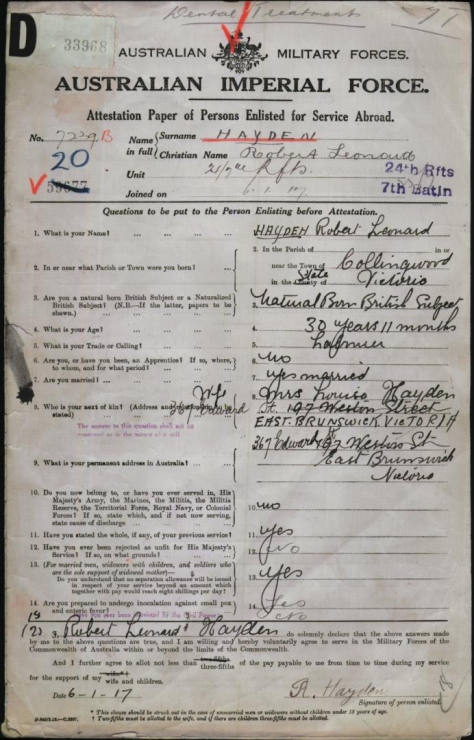 Dental Treatment
D
33968
AUSTRALIAN MILITARY FORCES.
AUSTRALIAN IMPERIAL FORCE.
Attestation Paper of Persons Enlisted for Service Abroad.
No. B Name in full Surname HAYDEN
20 Christian Name Robert Leonard
Unit 24th Rfts
Joined on 6.1.17 7th Batln
Questions to be put to the Person Enlisting before Attestation.
1. What is your Name? ... ... ... 1. HAYDEN Robert Leonard
2. In or near what Parish or Town were you born? ... 2. In the Parish of in or
near the Town of Collingwood
in the County of State Victoria
3. Are you a natural born British Subject or a Naturalized British Subject? (N.B.—If the latter, papers to be shown.) 3. Natural Born British Subject
4. What is your Age? 4. 30 years 11 months
5. What is your Trade or Calling? 5.
6. Are you, or have you been, an Apprentice? If so, where, to whom, and for what period? 6. no
7. Are you married? 7. yes married
8. Who is your next of kin? (Address and stated) Wife 367 Edward 8. Mrs Louise Hayden
St. 197 Weston Street
EAST BRUNSWICK VICTORIA
9. What is your permanent address in Australia? 367 Edward 197 Weston St
East Brunswick
Victoria
10. Do you now belong to, or have you ever served in, His Majesty's Army, the Marines, the Militia, the Militia Reserve, the Territorial Force, Royal Navy, or Colonial Forces? If so, state which, and if not now serving, state cause of discharge 10. no
11. Have you stated the whole, if any, of your previous service? 11. yes
12. Have you ever been rejected as unfit for His Majesty's Service? If so, on what grounds? 12. No
13. (For married men, widowers with children, and soldiers who are the sole support of widowed mother)—
Do you understand that no separation allowance will be issued in respect of your service beyond an amount which together with pay would reach eight shillings per day? 13. yes
14. Are you prepared to undergo inoculation against small pox and enteric fever? 14. Yes
No
I, Robert Leonard Hayden do solemnly declare that the above answers made
by me to the above questions are true, and I am willing and hereby voluntarily agree to serve in the Military Forces of the
Commonwealth of Australia within or beyond the limits of the Commonwealth.
And I further agree to allot not less than three-fifths of the pay payable to me from time to time during my service
for the support of my wife and children.
Date 6-1-17 R. Hayden
Signature of person enlisted.
* This clause should be struck out in the case of unmarried men or widowers without children under 18 years of age.
† Two-fifths must be allotted to the wife, and if there are children three-fifths must be allotted.